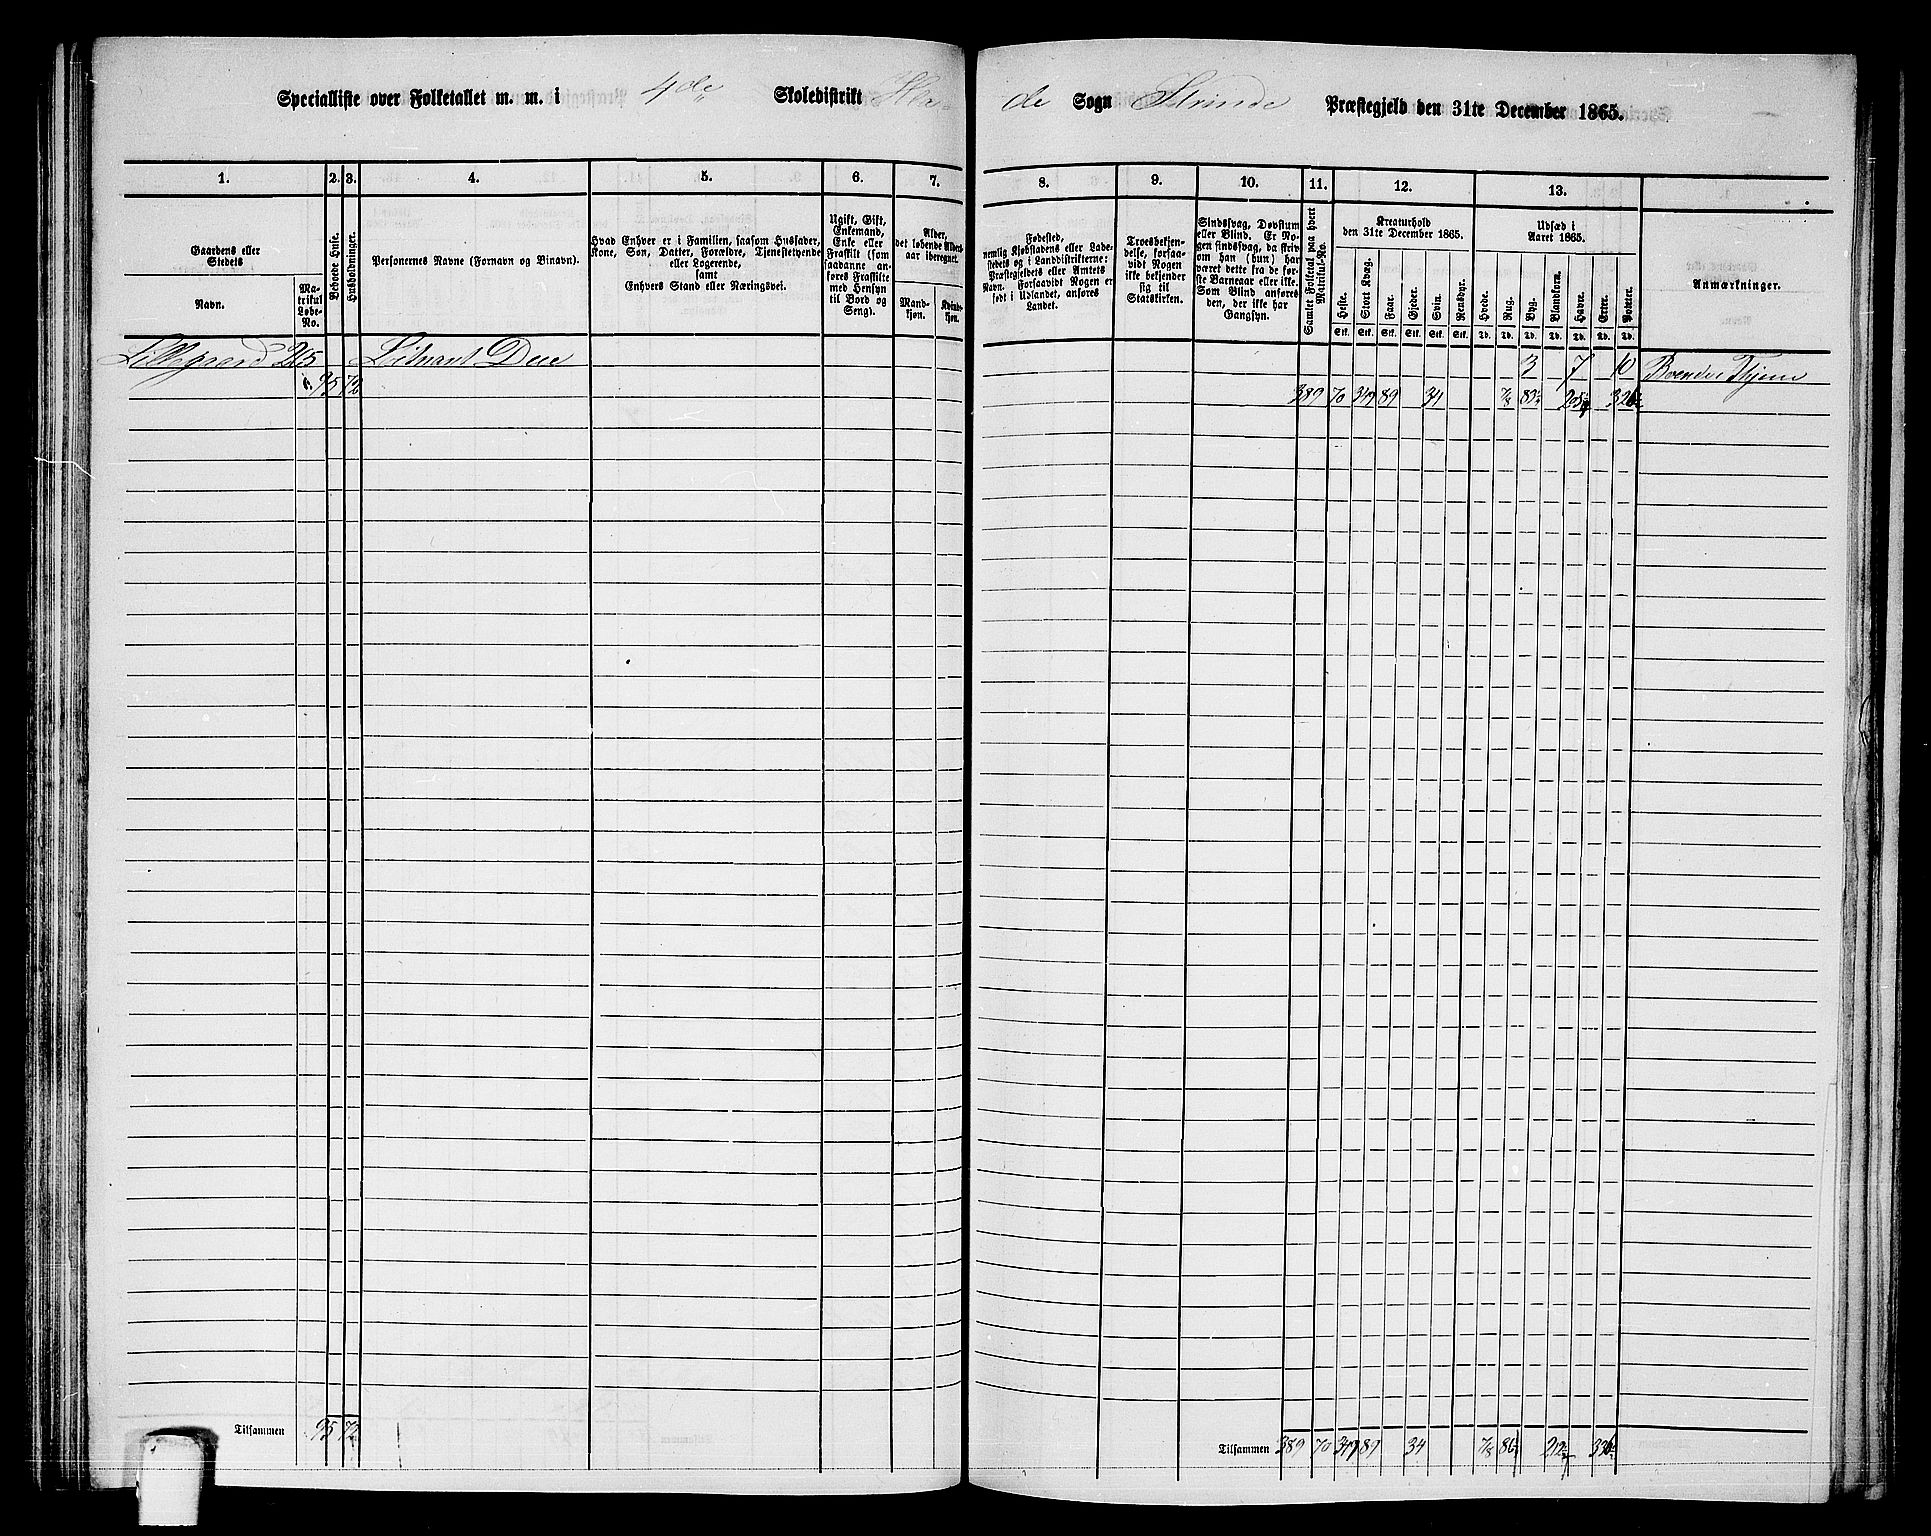 Specialliste over Folketallet m. m. i 4de Skoledistrikt Hla- de Sogn Strinde Præstegjeld den 31te December 1865.
1. 2. 3. 4. 5. 6. 7. 8. 9. 10. 11. 12. 13.
Gaardens eller
Stedets
Navn.
Ma-
trikul
Løbe-
No.
Beboede Huse.
Husholdninger.
Personernes Navne (Fornavn og Binavn).
Hvad Enhver er i Familien, saasom Husfader,
Kone, Søn, Datter, Forældre, Tjenestetyende
eller Logerende,
samt
Enhvers Stand eller Næringsvei.
Ugift, Gift,
Enkemand,
Enke eller
Fraskilt (som
saadanne an-
føres Fraskilte
med Hensyn
til Bord og
Seng).
Alder,
det løbende Alders-
aar iberegnet.
Mand-
kjøn.
Kvinde-
kjøn.
Fødested,
nemlig Kjøbstadens eller Lade-
stedets og i Landdistrikterne:
Præstegjeldets eller Amtets
Navn. Forsaavidt Nogen er
født i Udlandet, anføres
Landet.
Troesbekjen-
delse, forsaa-
vidt Nogen
ikke bekjender
sig til
Statskirken.
Sindssvag, Døvstum
eller Blind. Er No-
gen sindssvag, da skriv
om han (hun) har
været dette fra de før-
ste Barneaar eller ikke.
Som Blind anføres
den, der ikke har
Gangsyn.
Samlet Folketal paa hvert
Matrikul-No.
Kreaturhold
den 31te December 1865.
Heste.
Stort Kvæg.
Faar.
Gjeder.
Svin.
Rensdyr.
Stk. Stk. Stk. Stk. Stk. Stk.
Udsæd i
Aaret 1865.
Hvede.
Rug.
Byg.
Blandkorn.
Havre.
Erter.
Poteter.
Td. Td. Td. Td. Td. Td. Td.
Anmærkninger.
Lillegaard 265 Løitnant Due 3 7 10 Boende i Thjem
95 72 389 70 347 89 34 7/8
Tilsammen 95 72 Tilsammen 389 70 347 89 34 7/8